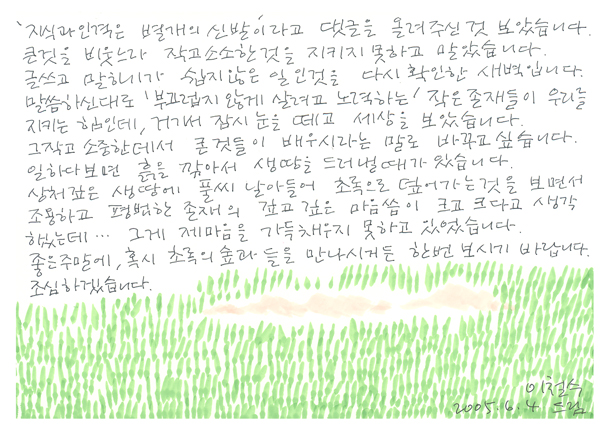 '지식과 인격은 별개의 신발'이라고 댓글을 올려주신 것 보았습니다.
큰것을 비웃느라 작고 소소한 것을 지키지 못하고 말았습니다.
글쓰고 말하기가 쉽지 않은 일인것을 다시 확인한 새벽입니다.
말씀하신대로 '부끄럽지 않게 살려고 노력하는' 작은 존재들이 우리를
지키는 힘인데, 거기서 잠시 눈을 떼고 세상을 보았습니다.
그 작고 소중한데서 큰것들이 배우시라는 말로 바꾸고 싶습니다.
일하다 보면 흙을 깎아서 생땅을 드러낼 때가 있습니다.
상처 깊은 생땅에 풀씨 날아들어 초록으로 덮어가는 것을 보면서
조용하고 평범한 존재의 깊고 깊은 마음씀이 크고 크다고 생각
했는데… 그게 제 마음을 가득 채우지 못하고 있었습니다.
좋은 주말에, 혹시 초록의 숲과 들을 만나시거든 한번 보시기 바랍니다.
조심하겠습니다.
이철수
2005.6.4 드림